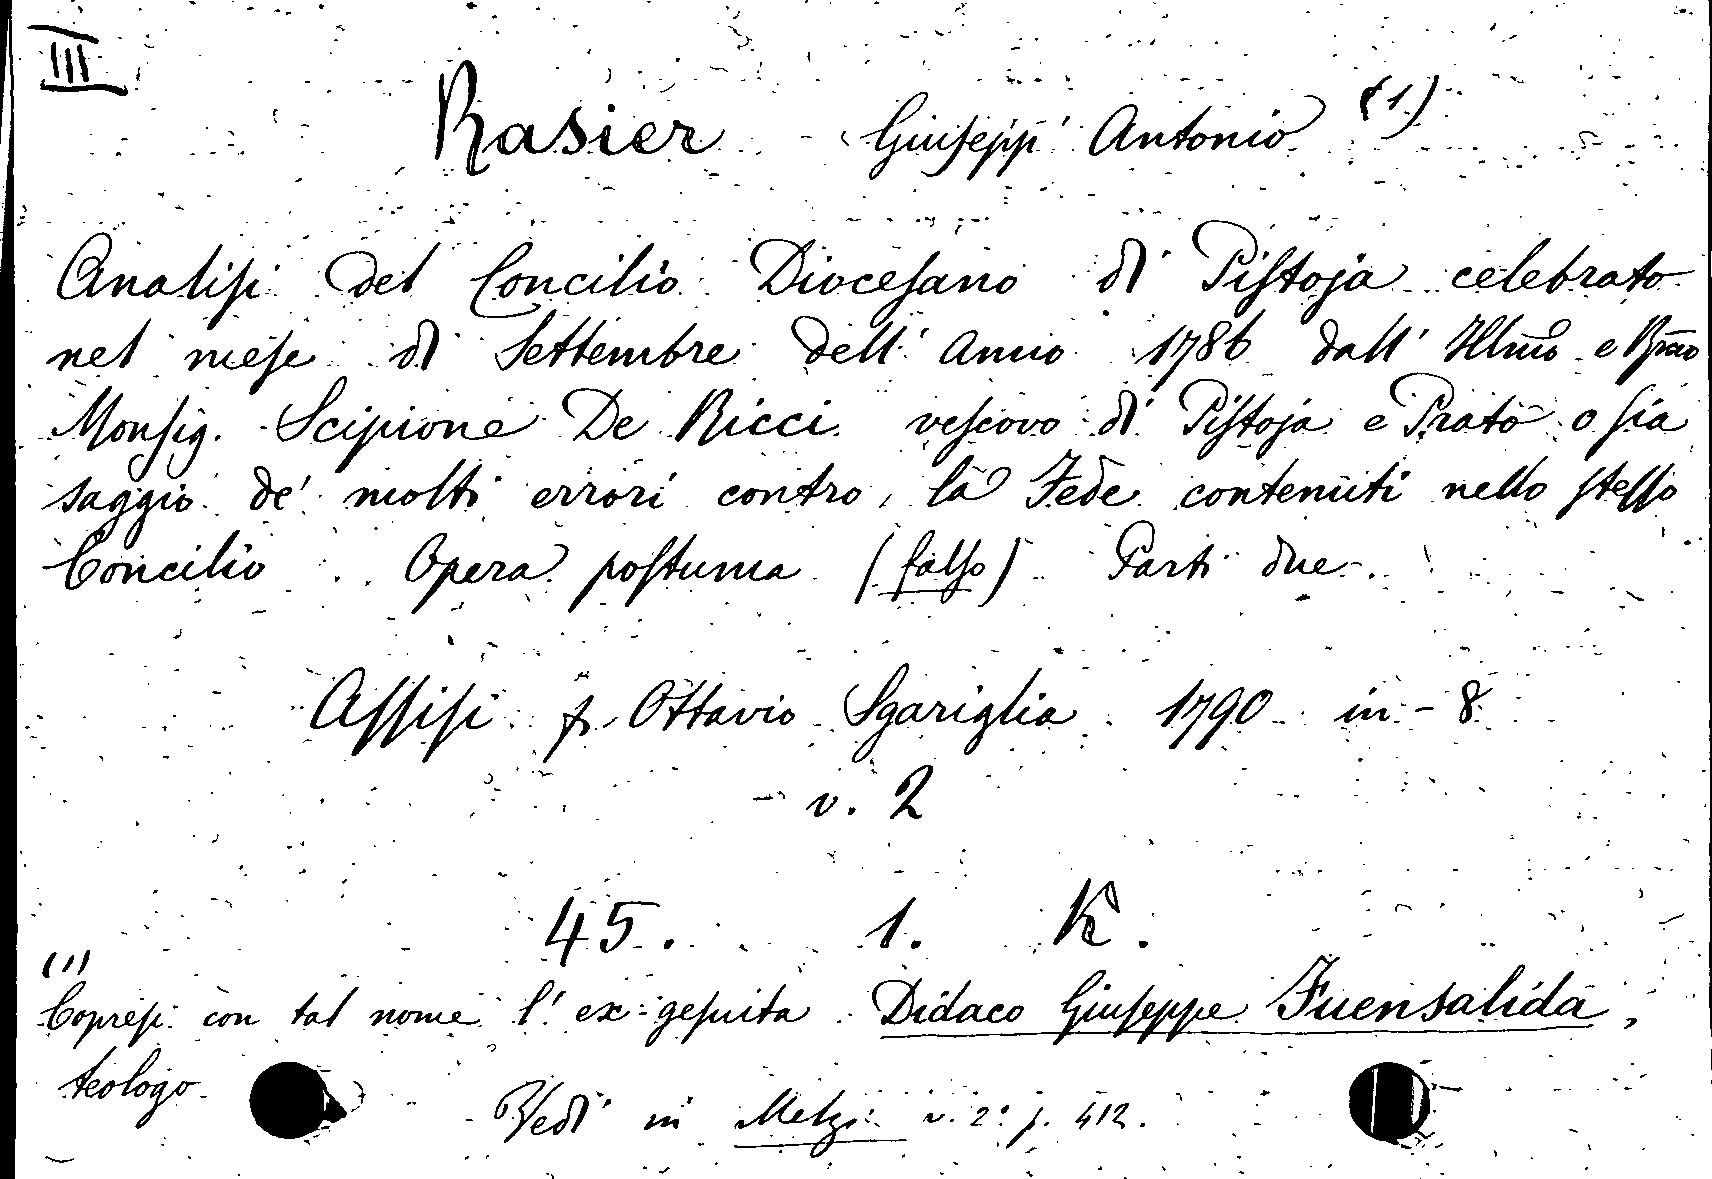 III
Rasier Giuseppe Antonio (1)
Analisi del Concilio Diocesano di Pistoja celebrato
nel mese di Settembre dell' anno 1786 dall' Illmo e Rmo
Monsig. Scipione De Ricci vescovo di Pistoja e Prato o sia
saggio de' molti errori contro la Fede contenuti nello stesso
Concilio . . Opera postuma (falso) Parti due.
Assisi p. Ottavio Sgariglia 1790 in-8
v. 2
45. 1. K.
(1)
Copresi con tal nome l' ex-gesuita Didaco Giuseppe Fuensalida,
teologo
Vedi in Melzi v. 2º p. 412.